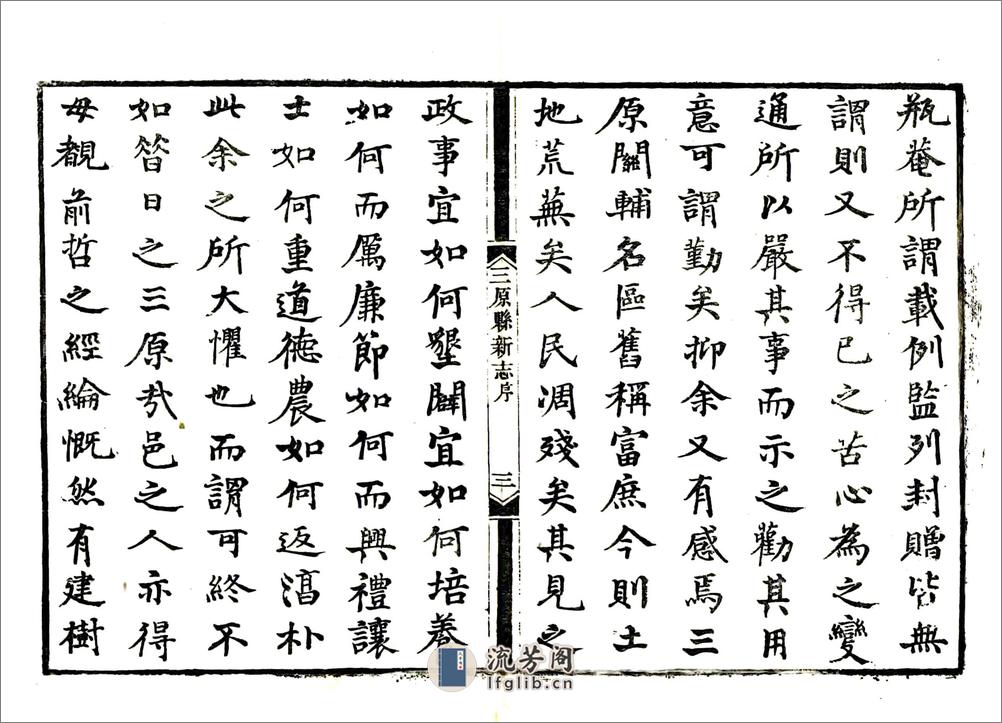 瓶菴所謂載例監列封贈皆無
謂則又不得已之苦心為之變
通所以嚴其事而示之勸其用
意可謂勤矣抑余又有感焉三
原關輔名區舊稱富庶今則土
地荒蕪矣人民凋殘矣其見之
三原縣新志序
三
政事宜如何墾闢宜如何培養
如何而厲廉節如何而興禮讓
士如何重道德農如何返淳朴
此余之所大懼也而謂可終不
如昝日之三原哉邑之人亦得
毋覩前哲之經綸慨然有建樹
流芳阁
lfglib.cn